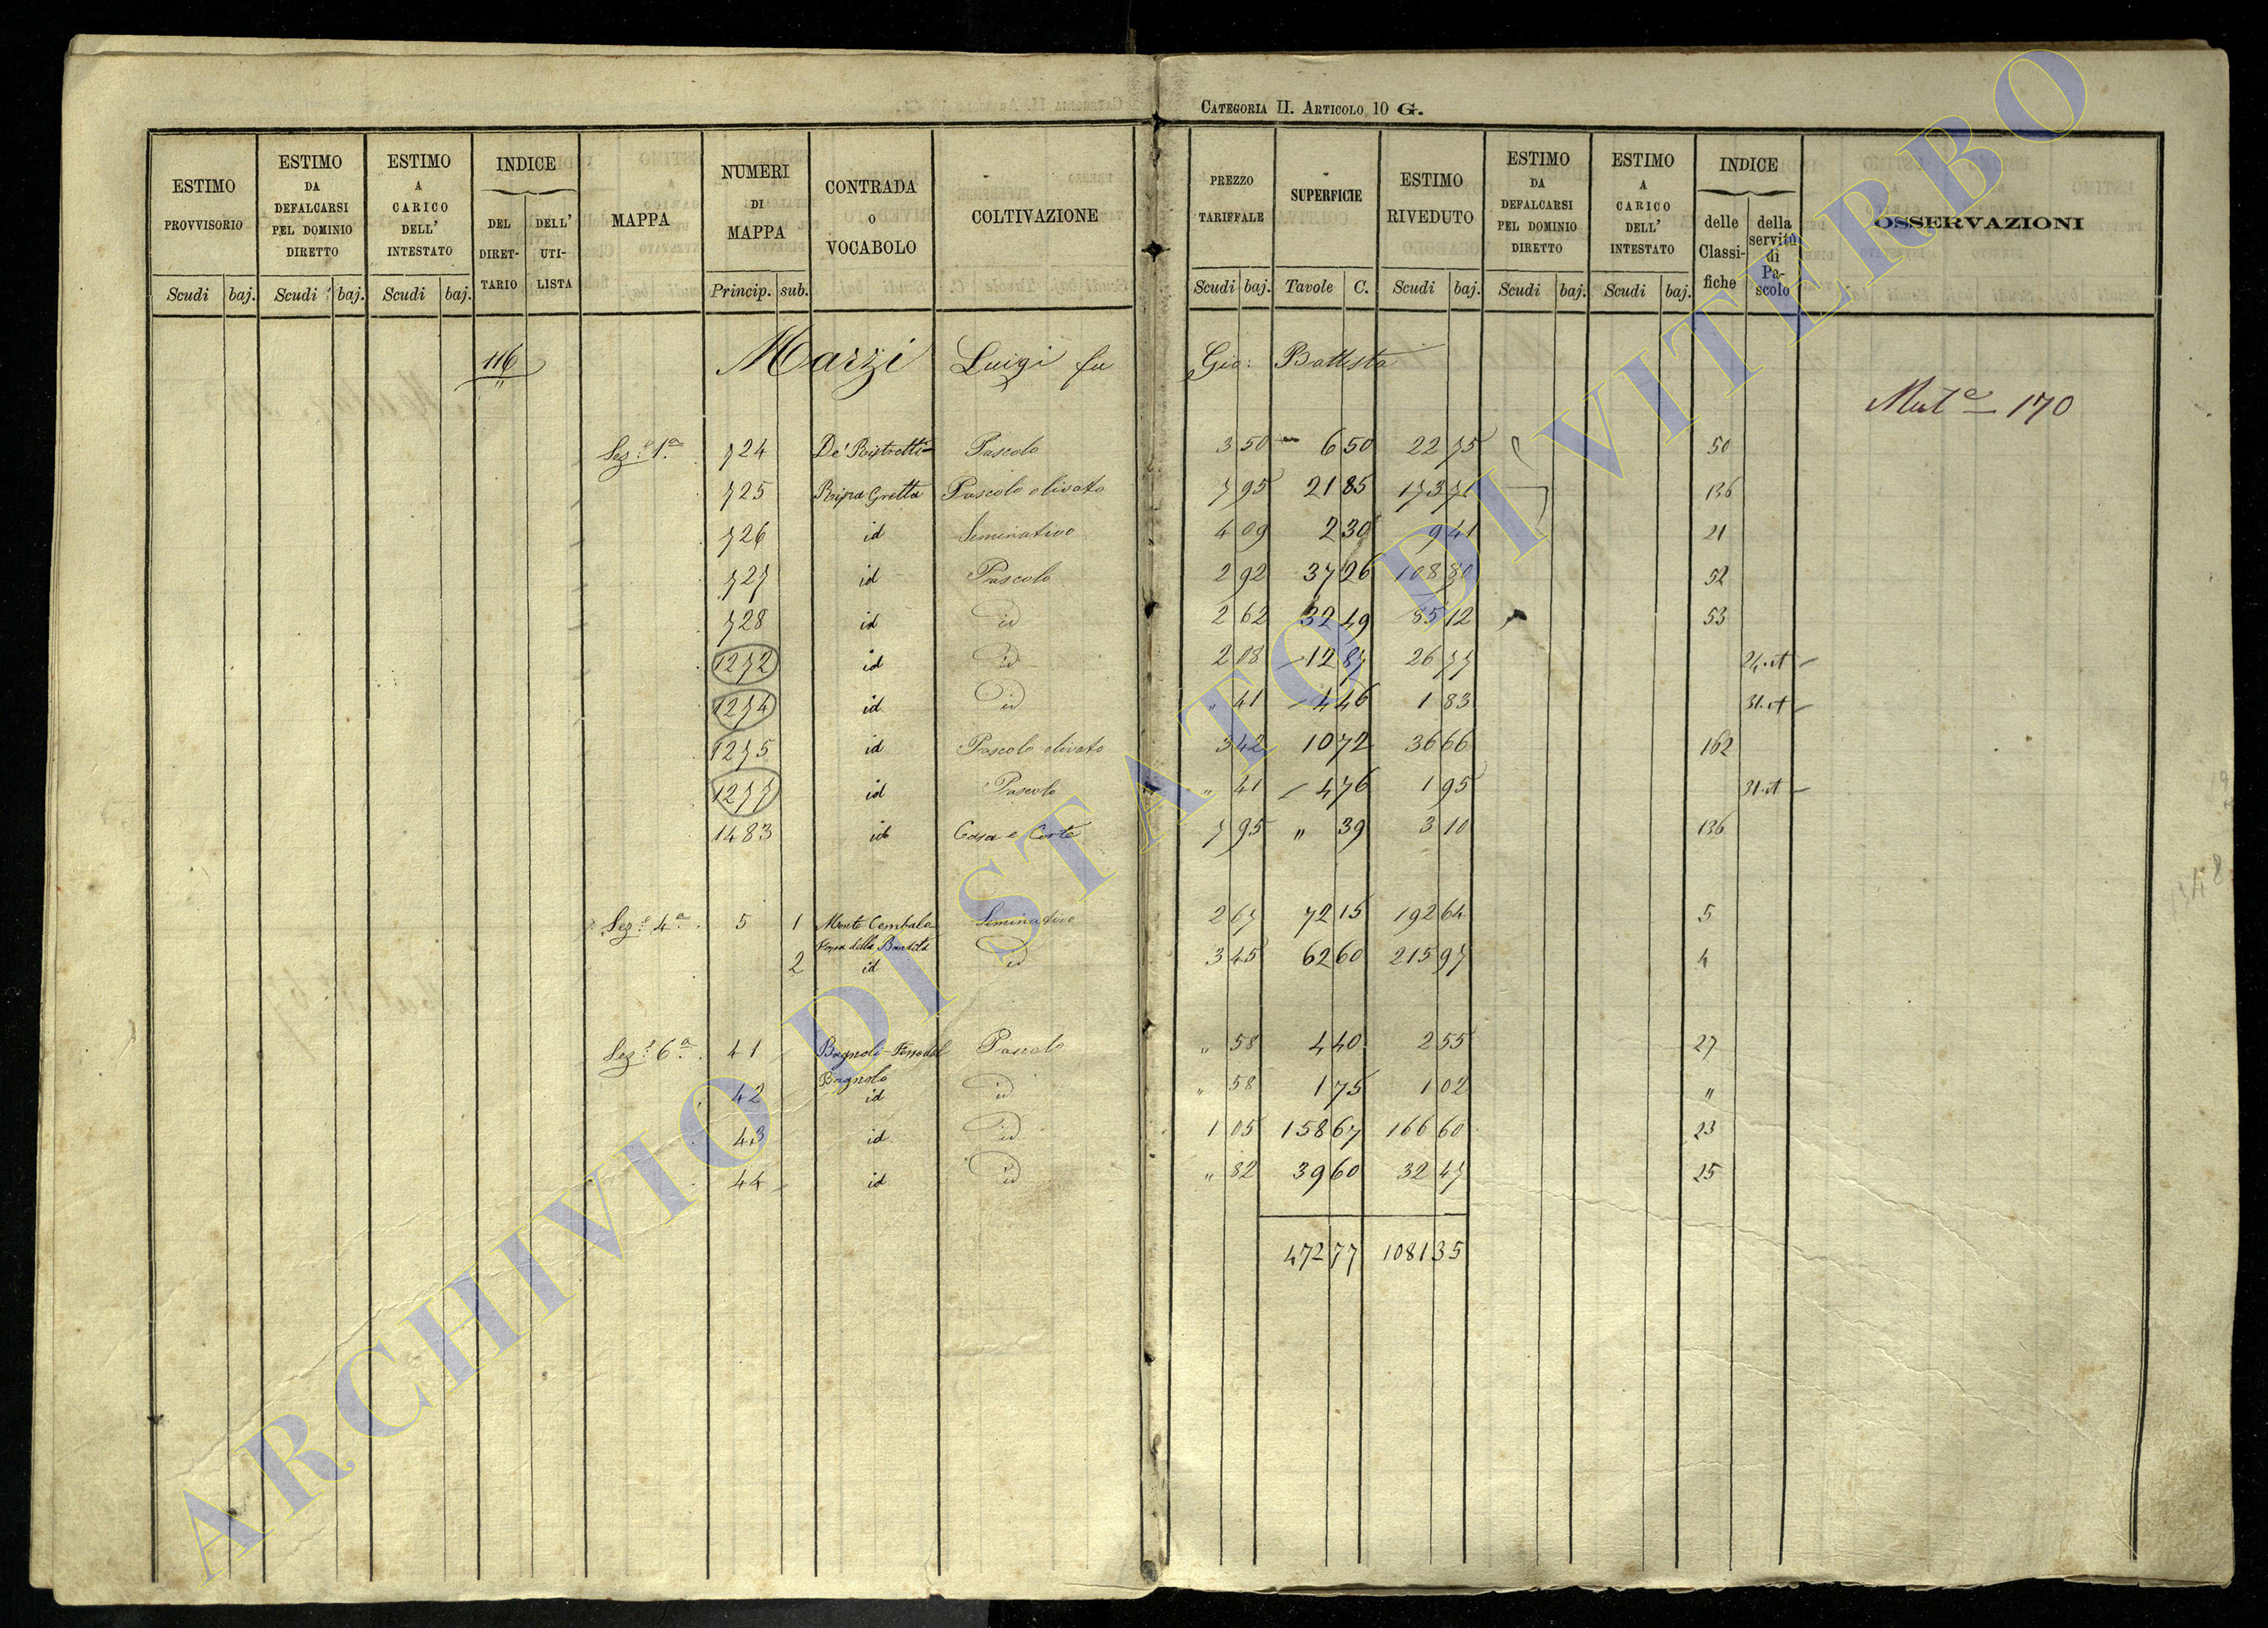 CATEGORIA II. ARTICOLO 10 G.
ESTIMO PROVVISORIO
ESTIMO DA DEFALCARSI PEL DOMINIO DIRETTO
ESTIMO A CARICO DELL' INTESTATO
INDICE
DEL DIRETTARIO
DELL' UTILISTA
MAPPA
NUMERI DI MAPPA
CONTRADA O VOCABOLO
COLTIVAZIONE
PREZZO TARIFFALE
SUPERFICIE
ESTIMO RIVEDUTO
ESTIMO DA DEFALCARSI PEL DOMINIO DIRETTO
ESTIMO A CARICO DELL' INTESTATO
INDICE
delle Classifiche
della servitù di Pascolo
OSSERVAZIONI
Scudi baj. Scudi baj. Scudi baj. Princip. sub. Scudi baj. Tavole C. Scudi baj. Scudi baj. Scudi baj.
116 Marzi Luigi fu Gio: Battista
Mut.e 170
Sez.e 1.a 724 De' Ristretti Pascolo 3 50 6 50 22 75 50
725 Ripa Gretta Pascolo olivato 7 95 21 85 173 71 136
726 id Seminativo 4 09 2 30 9 41 21
727 id Pascolo 2 92 37 26 108 80 52
728 id id 2 62 32 49 85 12 53
1272 id id 2 08 12 87 26 77 24.ct
1274 id id " 41 4 46 1 83 31.ct
1275 id Pascolo olivato 3 42 10 72 36 66 162
1277 id Pascolo " 41 4 76 1 95 31.ct
1483 id Casa e Corte 7 95 " 39 3 10 136
Sez.e 4.a 5 1 Monte Cembalo Seminativo 2 67 72 15 192 64 5
Fossa della Bandita
2 id id 3 45 62 60 215 97 4
Sez.e 6.a 41 Bagnoli - Fosso del Pascolo " 58 4 40 2 55 27
Bagnolo
42 id id " 58 1 75 1 02 "
43 id id 1 05 158 67 166 60 23
44 id id " 82 39 60 32 47 25
472 77 1081 35
148
ARCHIVIO DI STATO DI VITERBO